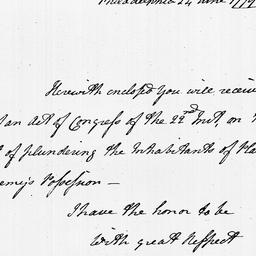 Philadelphia 24 June 1779
Herewith enclosed you will receiv
an Act of Congress of the 22nd Inst, on
of plundering the Inhabitants of
emy's Possession —
I have the honor to be
With great Respect